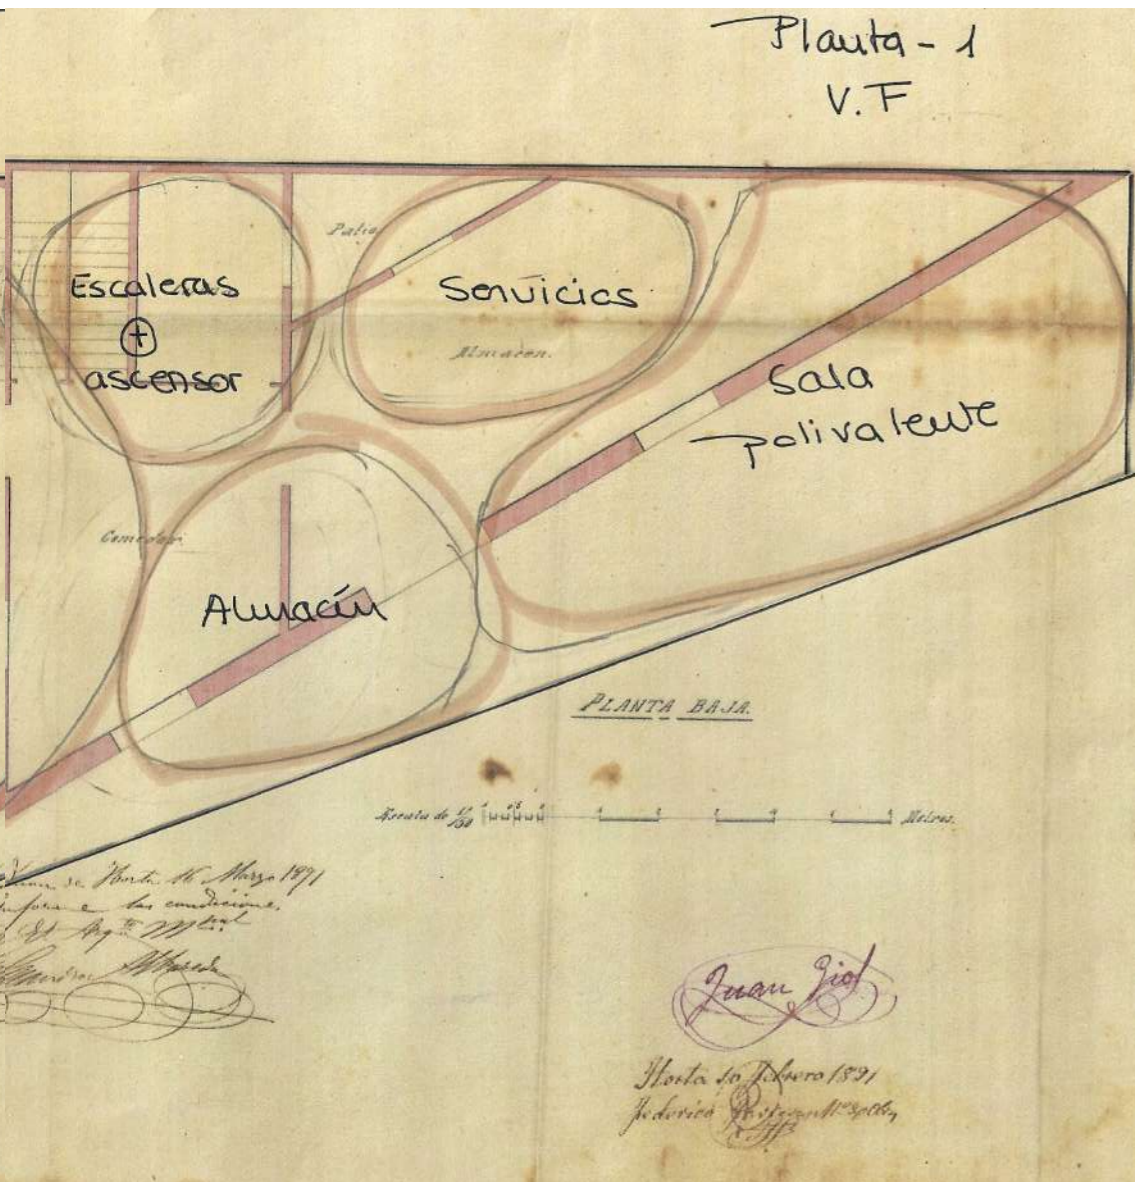 Planta - 1
V.F
Patio
Escaleras
+
ascensor
Servicios
Almacen.
Sala
polivalente
Comedor.
Almacén
PLANTA BAJA.
Escala de 1/50
Metros.
de Horta 16 Marzo 1891
las condiciones.
El Arqto
Juan Giol
Horta 10 Febrero 1891
Federico